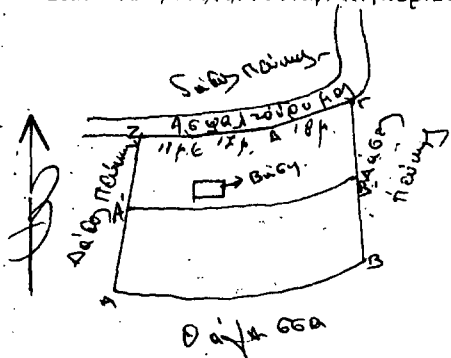 Δάσος πεύκης
Ασφαλτόδρομος
Ζ
11μ. Ε 17μ. Δ 18μ.
Γ
Δάσος πεύκης
Βάση
Δάσος πεύκης
Α'
Β'
Α
Β
Θάλασσα